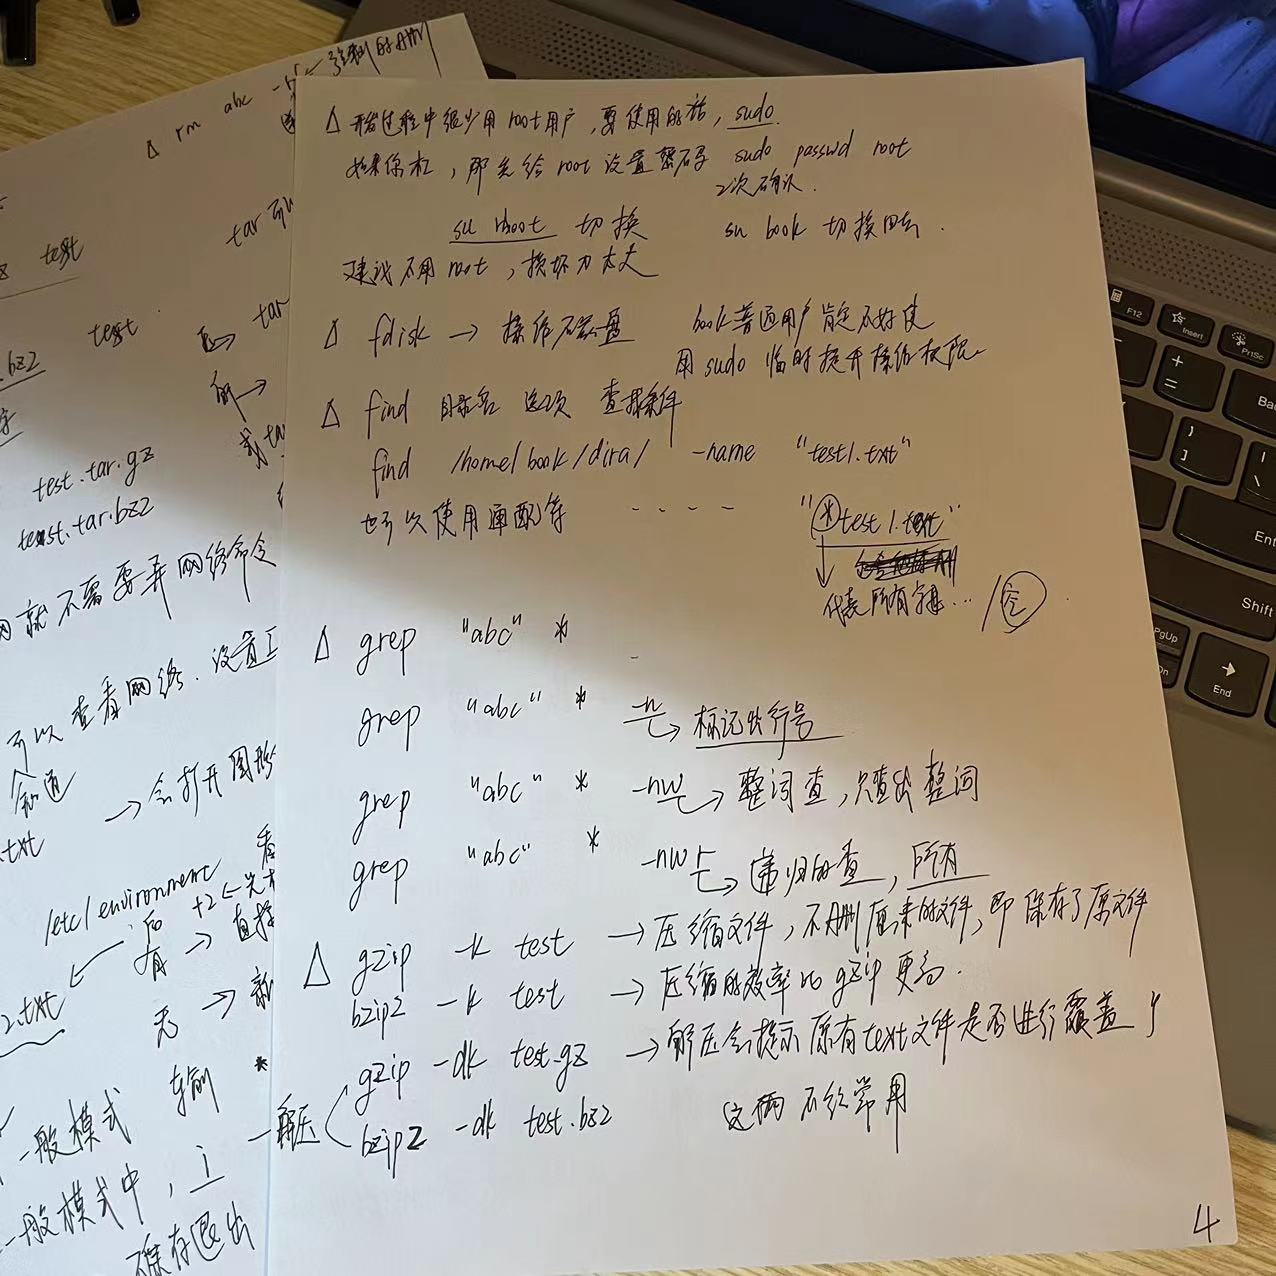 △ 开发过程中很少用root用户，要使用的话，sudo.
如果你杠，那先给root设置密码 sudo passwd root
2次确认.
su root 切换 su book 切换回去.
建议不用root，损坏力太大
△ fdisk → 操作磁盘 book普通用户肯定不好使
用sudo临时提升操作权限
△ find 目录名 选项 查找条件
find /home/book/dira/ -name "test1.txt"
也可以使用通配符 ---- "*test1.text"
代表所有字母... /空
△ grep "abc" *
grep "abc" * -n → 标记出行号
grep "abc" * -nw → 整词查，只查出整词
grep "abc" * -nwr → 递归的查，所有
△ gzip -k test → 压缩文件，不删原来的文件，即保存了原文件
bzip2 -k test → 压缩的效率比gzip更高.
解压 gzip -dk test.gz → 解压会提示原有text文件是否进行覆盖 y
bzip2 -dk test.bz2 这两不经常用
4
△ rm abc
强制的删
test
tar
test
tar
.bz2
test.tar.gz
test.tar.bz2
就不需要弄网络命令
可以查看网络.设置
→会打开图形
.txt
/etc/environment
后 +2
有 → 直接
2.txt
无 → 新
一般模式 输
一般模式中，i
保存退出